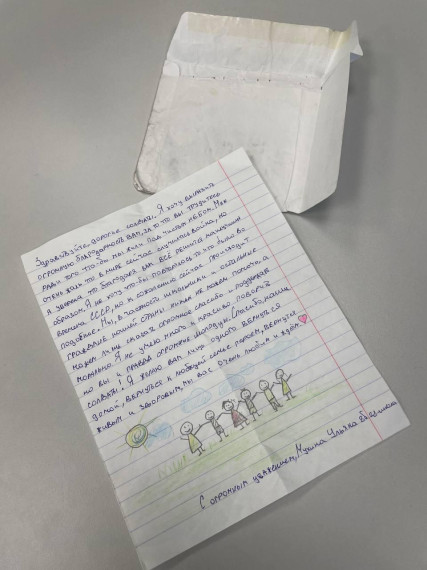 Здравствуйте, дорогие солдаты. Я хочу выразить
огромную благодарность вам, за то что вы трудитесь
ради того, что бы мы жили под чистым небом. Мне
жаль что в мире сейчас случилась война, но
я уверена что благодаря вам всё решится наилучшим
образом. Я не хочу что бы повторялось то что было во
времена СССР, но к сожалению сейчас происходит
подобное. Мы, в частности школьники и остальные
граждане нашей страны никак не можем помочь, а
можем лишь сказать огромное спасибо и поддержать
морально. Я не умею много и красиво говорить
но вы и правда огромные молодцы. Спасибо, наши
солдаты! Я желаю вам лишь одного вернуться
домой, вернуться к любящей семье рядом, вернуться
живым и здоровым, мы вас очень любим и ждём.
С огромным уважением, Мухина Ульяна